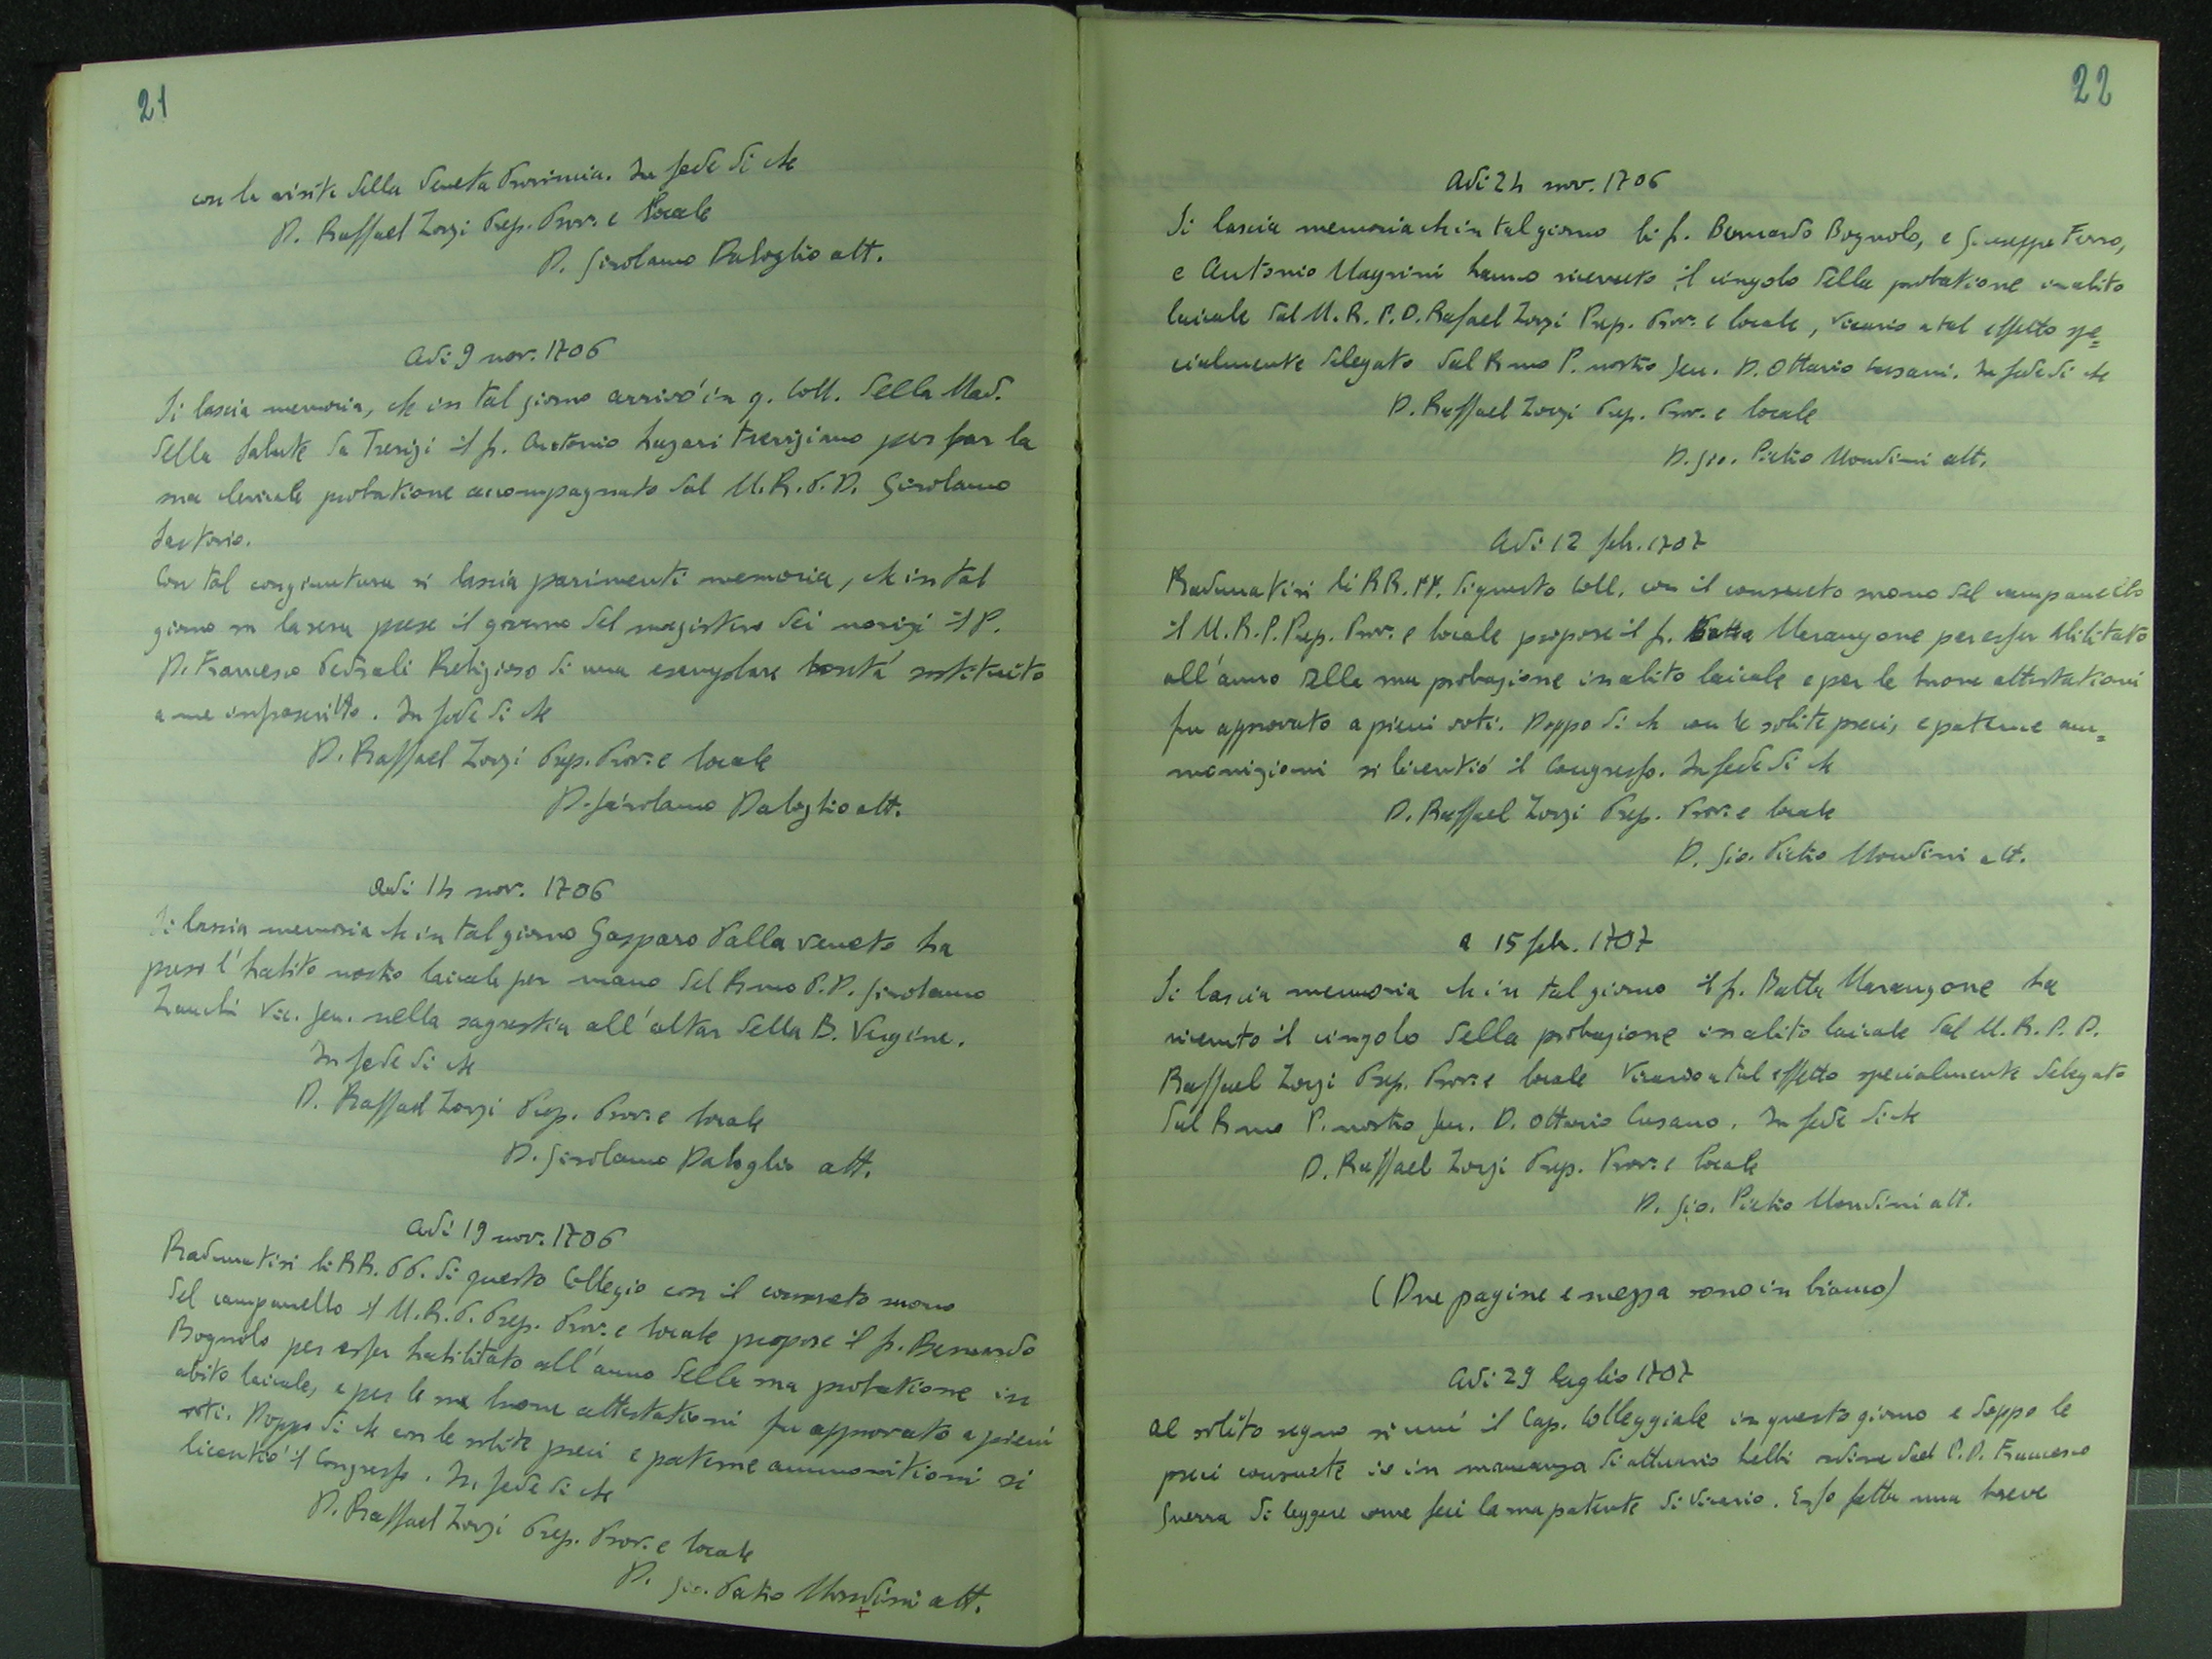 21
con la visita della Veneta Provincia. In fede di che
D. Raffael Zorzi Prep. Prov. e locale
D. Girolamo Daloglio att.
Adi 9 nov. 1706
Si lascia memoria, che in tal giorno arrivò in q. Coll. della Mad.
della Salute da Trevigi il fr. Antonio Lugari trevigiano per far la
sua clericale probatione accompagnato dal M.R.P.D. Girolamo
Sartorio.
Con tal congiuntura si lascia parimenti memoria, che in tal
giorno su la sera prese il governo del magistero dei novizi il P.
D. Francesco Pedrali Religioso di una esemplare bontà sostituito
a me infrascritto. In fede di che
D. Raffael Zorzi Prep. Prov. e locale
D. Girolamo Daloglio att.
Adi 14 nov. 1706
Si lascia memoria che in tal giorno Gasparo Palla veneto ha
preso l'habito nostro laicale per mano del R.mo P.D. Girolamo
Zanchi Vic. Gen. nella sagrestia all'altar della B. Vergine.
In fede di che
D. Raffael Zorzi Prep. Prov. e locale
D. Girolamo Daloglio att.
Adi 19 nov. 1706
Radunatisi li RR. PP. di questo Collegio con il consueto suono
del campanello il M.R.P. Prep. Prov. e locale propose il fr. Bernardo
Bognolo per esser habilitato all'anno della sua probatione in
abito laicale, e per le sue buone attestationi fu approvato a pieni
voti. Doppo di che con le solite preci e paterne ammonitioni si
licentiò il Congresso. In fede di che
D. Raffael Zorzi Prep. Prov. e locale
D. Gio. Patio Mondini att.
22
Adi 24 nov. 1706
Si lascia memoria che in tal giorno li fr. Bernardo Bognolo, e Giuseppe Ferro,
e Antonio Magrini hanno ricevuto il cingolo della probatione in abito
laicale dal M.R.P.D. Rafael Zorzi Prep. Prov. e locale, vicario a tal effetto spe=
cialmente delegato dal R.mo P. nostro Gen. D. Ottavio Cusani. In fede di che
D. Raffael Zorzi Prep. Prov. e locale
D. Gio. Pietro Mondini att.
Adi 12 feb. 1707
Radunatisi li RR. PP. di questo Coll. con il consueto suono del campanello
il M.R.P. Prep. Prov. e locale propose il fr. Batta Marangone per esser abilitato
all'anno della sua probazione in abito laicale e per le buone attestationi
fu approvato a pieni voti. Doppo di che con le solite preci, e paterne am=
monizioni si licentiò il Congresso. In fede di che
D. Raffael Zorzi Prep. Prov. e locale
D. Gio. Pietro Mondini att.
a 15 feb. 1707
Si lascia memoria che in tal giorno il fr. Batta Marangone ha
ricevuto il cingolo della probazione in abito laicale dal M.R.P.D.
Raffael Zorzi Prep. Prov. e locale Vicario a tal effetto specialmente delegato
dal R.mo P. nostro Gen. D. Ottavio Cusano. In fede di che
D. Raffael Zorzi Prep. Prov. e locale
D. Gio. Pietro Mondini att.
(Due pagine e mezza sono in bianco)
Adi 29 luglio 1707
Al solito segno si unì il Cap. Colleggiale in questo giorno e doppo le
preci consuete io in mancanza di attuario hebbi ordine dal P.D. Francesco
Guerra di leggere come feci la sua patente di Vicario. Esso fatta una breve